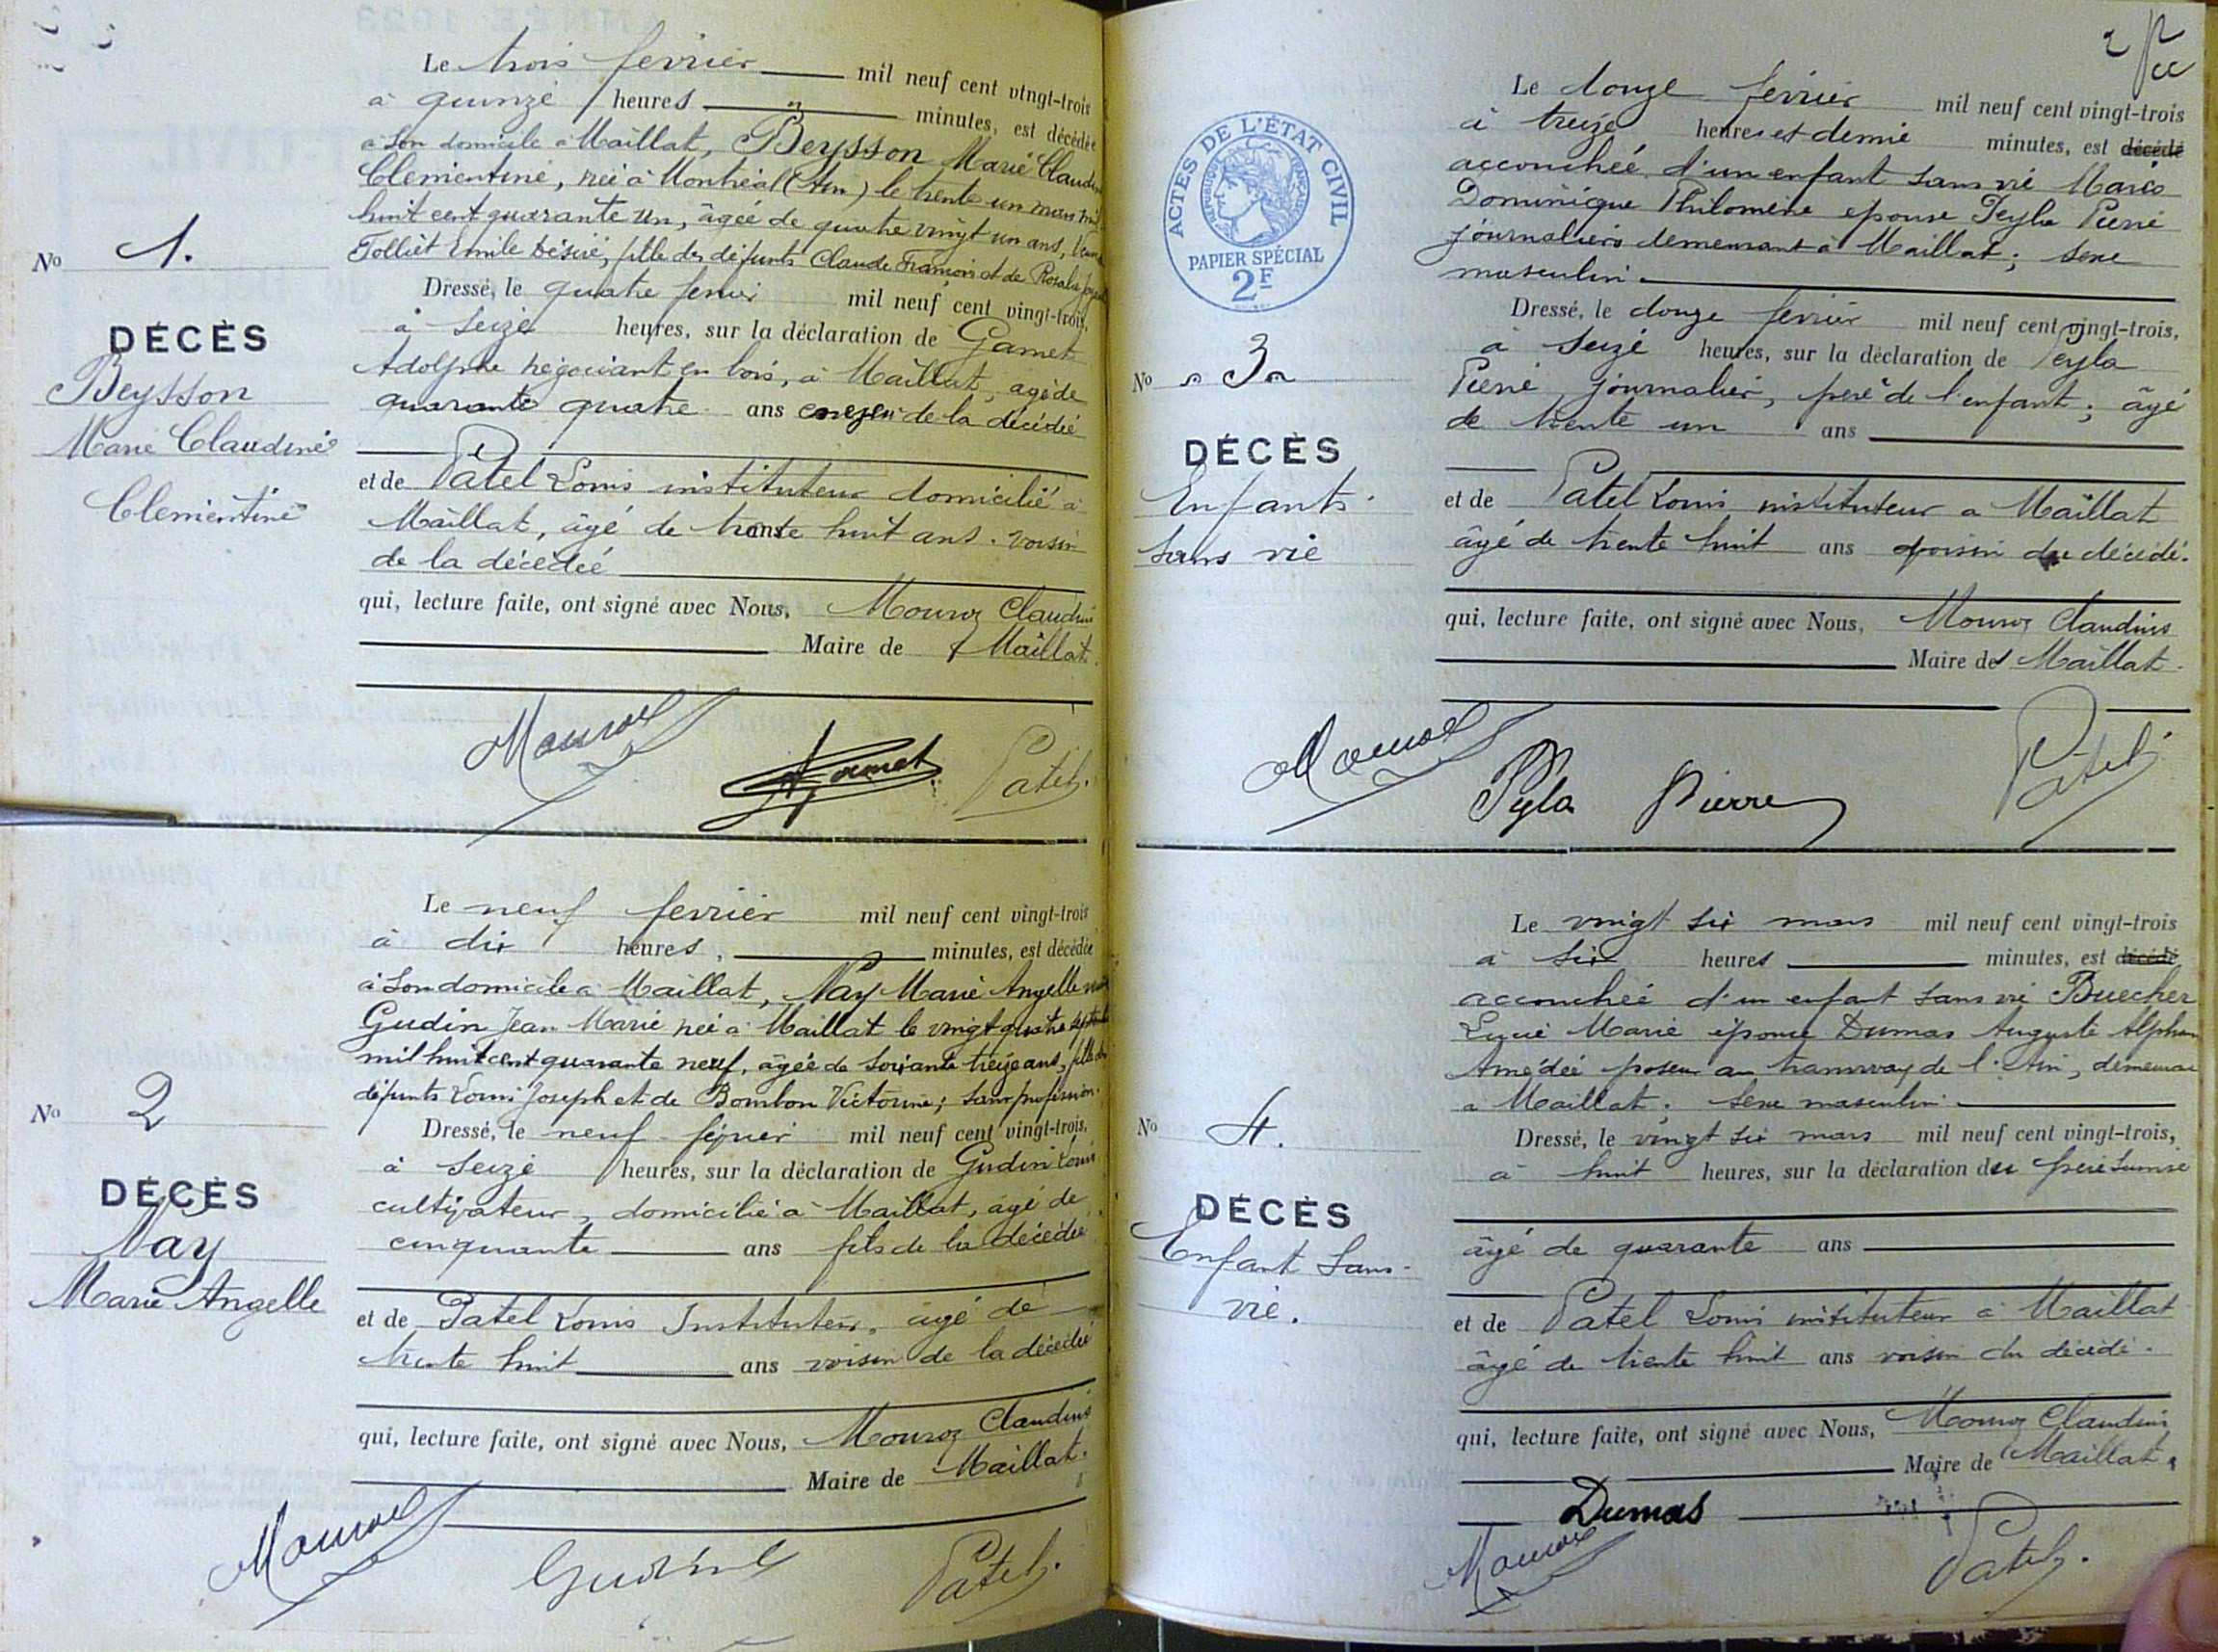 Le trois fevrier mil neuf cent vingt-trois
à quinze heures " minutes, est décédée
à son domicile à Maillat, Beysson Marie Claudine
Clementine, née à Montréal (Ain) le trente un mars mil
huit cent quarante un, âgée de quatre vingt un ans, Veuve
Tolliet Emile Désiré, fille des défunts Claude François et de Rosalie
Dressé, le quatre fevrier mil neuf cent vingt-trois,
à seize heures, sur la déclaration de Gamet
Adolphe negociant en bois, à Maillat, agé de
quarante quatre ans de la décédée
et de Patel Louis instituteur domicilié à
Maillat, âgé de trente huit ans. voisin
de la décédée
qui, lecture faite, ont signé avec Nous, Mouroz Claudius
Maire de Maillat.
No 1.
DÉCÈS
Beysson
Marie Claudine
Clementine
Mouroz Gamet Patel.
Le neuf fevrier mil neuf cent vingt-trois
à dix heures, minutes, est décédée
à son domicile à Maillat, Nay Marie Angelle
Gudin Jean Marie née à Maillat le vingt quatre septembre
mil huit cent quarante neuf, âgée de soixante treize ans, fille des
défunts Louis Joseph et de Bombon Victorine; sans profession.
Dressé, le neuf février mil neuf cent vingt-trois,
à seize heures, sur la déclaration de Gudin Louis
cultivateur, domicilié à Maillat, agé de
cinquante ans fils de la décédée
et de Patel Louis Instituteur, agé de
trente huit ans voisin de la décédée
qui, lecture faite, ont signé avec Nous, Mouroz Claudius
Maire de Maillat.
No 2
DÉCÈS
Nay
Marie Angelle
Mouroz Gudin L Patel.
2
Le douze fevrier mil neuf cent vingt-trois
à treize heures et demie minutes, est décédé
accouchée d'un enfant sans vie Marie
Dominique Philomène epouse Peyla Pierre
journaliers demeurant à Maillat; sexe
masculin.
Dressé, le douze fevrier mil neuf cent vingt-trois,
à seize heures, sur la déclaration de Peyla
Pierre journalier, père de l'enfant; âgé
de trente un ans
et de Patel Louis instituteur a Maillat
âgé de trente huit ans voisin du décédé.
qui, lecture faite, ont signé avec Nous, Mouroz Claudius
Maire de Maillat.
ACTES DE L'ÉTAT CIVIL
RÉPUBLIQUE FRANÇAISE
PAPIER SPÉCIAL
2F
No 3
DÉCÈS
Enfants
sans vie
Mouroz Pyla Pierre Patel
Le vingt six mars mil neuf cent vingt-trois
à six heures minutes, est décédé
accouchée d'un enfant sans vie Buecher
Lucie Marie épouse Dumas Auguste Alphonse
Amédée poseur au tramway de l'Ain, demeurant
a Maillat; sexe masculin
Dressé, le vingt six mars mil neuf cent vingt-trois,
à huit heures, sur la déclaration du père
âgé de quarante ans
et de Patel Louis instituteur à Maillat
âgé de trente huit ans voisin du décédé.
qui, lecture faite, ont signé avec Nous, Mouroz Claudius
Maire de Maillat.
No 4.
DÉCÈS
Enfant Sans
vie.
Dumas
Mouroz Patel.